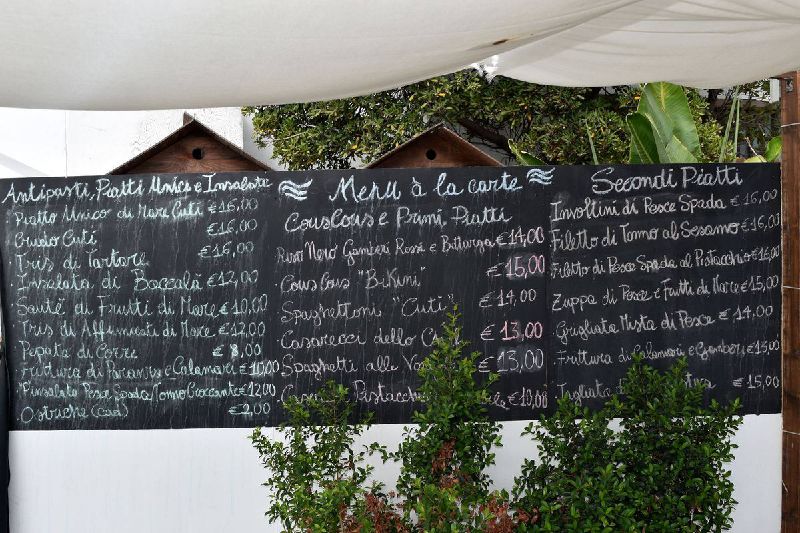 Antipasti, Piatti Unici e Insalate
Piatto Unico di Mare Cuti €16,00
Crudo Cuti €16,00
Tris di Tartare €16,00
Insalata di Baccalà €12,00
Sautè di Frutti di Mare €10,00
Tris di Affumicati di Mare €12,00
Pepata di Cozze € 8,00
Frittura di Paranza e Calamari €10,00
Pinsalata Pesce Spada/Tonno Croccante €12,00
Ostriche (cad) €2,00
Menu à la carte
CousCous e Primi Piatti
Riso Nero Gamberi Rossi e Bottarga €14,00
CousCous "BiKini" €15,00
Spaghettoni "Cuti" €14,00
Casarecci dello €13,00
Spaghetti alle €13,00
Pistacchio €10,00
Secondi Piatti
Involtini di Pesce Spada €16,00
Filetto di Tonno al Sesamo €16,00
Filetto di Pesce Spada al Pistacchio €16,00
Zuppa di Pesce e Frutti di Mare €15,00
Grigliata Mista di Pesce €14,00
Frittura di Calamari e Gamberi €13,00
Tagliata €15,00